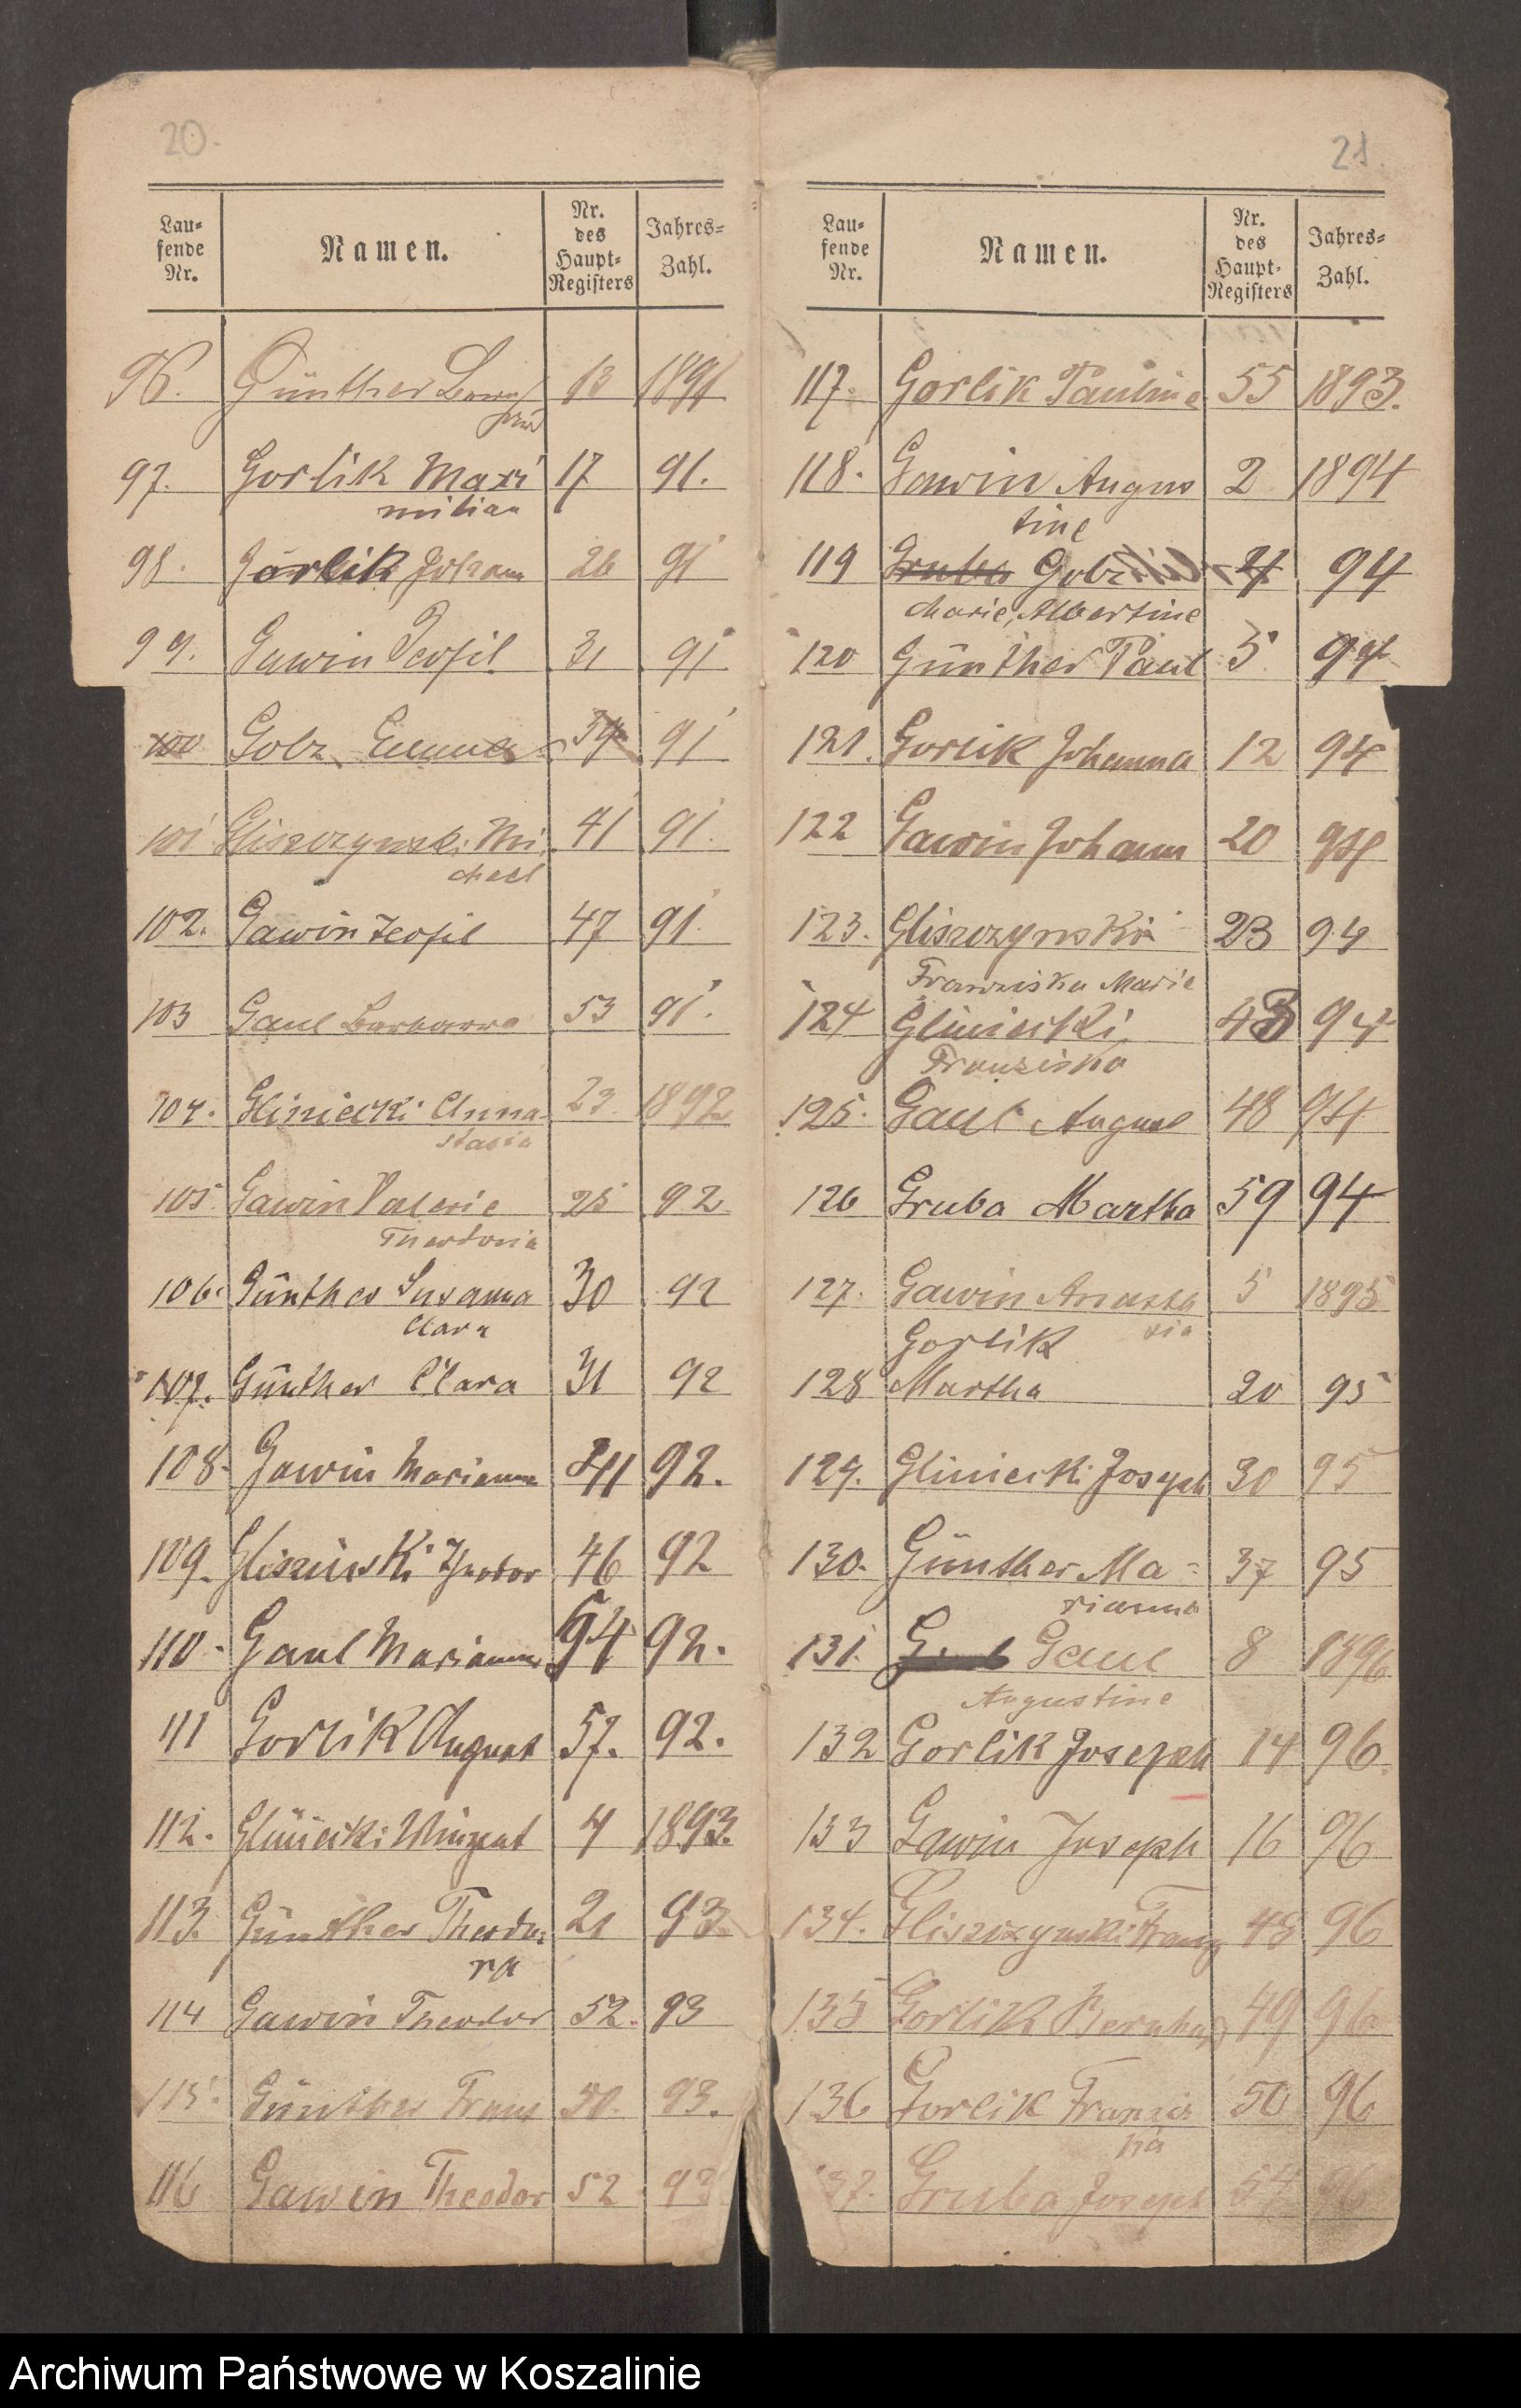 20.
Lau=
fende
Nr.
Namen.
Nr.
des
Haupt=
Registers
Jahres=
Zahl.
96. Günther 13 1891
97. Gorlik Maxi 17 91.
milian
98. Gorlik Johann 26 91
99. Gawin Teofil 31 91
100 Golz Emma 34 91
101 Gliszczynski Mi 41 91.
chael
102. Gawin Teofil 47 91.
103 Gaul Barbara 53 91.
104. Gliniecki Anna 23. 1892
stasia
105. Gawin Valerie 25 92
106. Günther Susanna 30 92
Clara
107. Günther Clara 31 92
108. Gawin Marianna 92.
109. Gliszinski Theodor 46 92
110. Gaul Marianna 54 92.
111 Gorlik August 57. 92.
112. Gliniecki Vinzent 4 1893.
113. Günther Theodo= 21 93
ra
114 Gawin Theodor 52. 93
115. Günther Franz 50. 93.
116 Gawin Theodor 52 93
21.
Lau=
fende
Nr.
Namen.
Nr.
des
Haupt=
Registers
Jahres=
Zahl.
117. Gorlik Pauline 55 1893.
118. Gawin Augus 2 1894
tine
119 Gruba Golz 4 94
Marie, Albertine
120 Günther Paul 5 94
121. Gorlik Johanna 12 94
122 Gawin Johann 20 94
123. Gliszczynski 23 94
Franziska Marie
124 Gliniecki 43 94
Franziska
125. Gaul August 48 94
126 Gruba Martha 59 94
127. Gawin Anasta 5 1895
sia
Gorlik
128 Martha 20 95
129. Gliniecki Joseph 30 95
130. Günther Ma= 37 95
rianna
131. Gaul 8 1896
Augustine
132 Gorlik Joseph 14 96.
133 Gawin Joseph 16 96
134. Gliszczynski Franz 48 96
135 Gorlik Bernhard 49 96
136 Gorlik Franzis 50 96
ka
137. Gruba Joseph 54 96
Archiwum Państwowe w Koszalinie